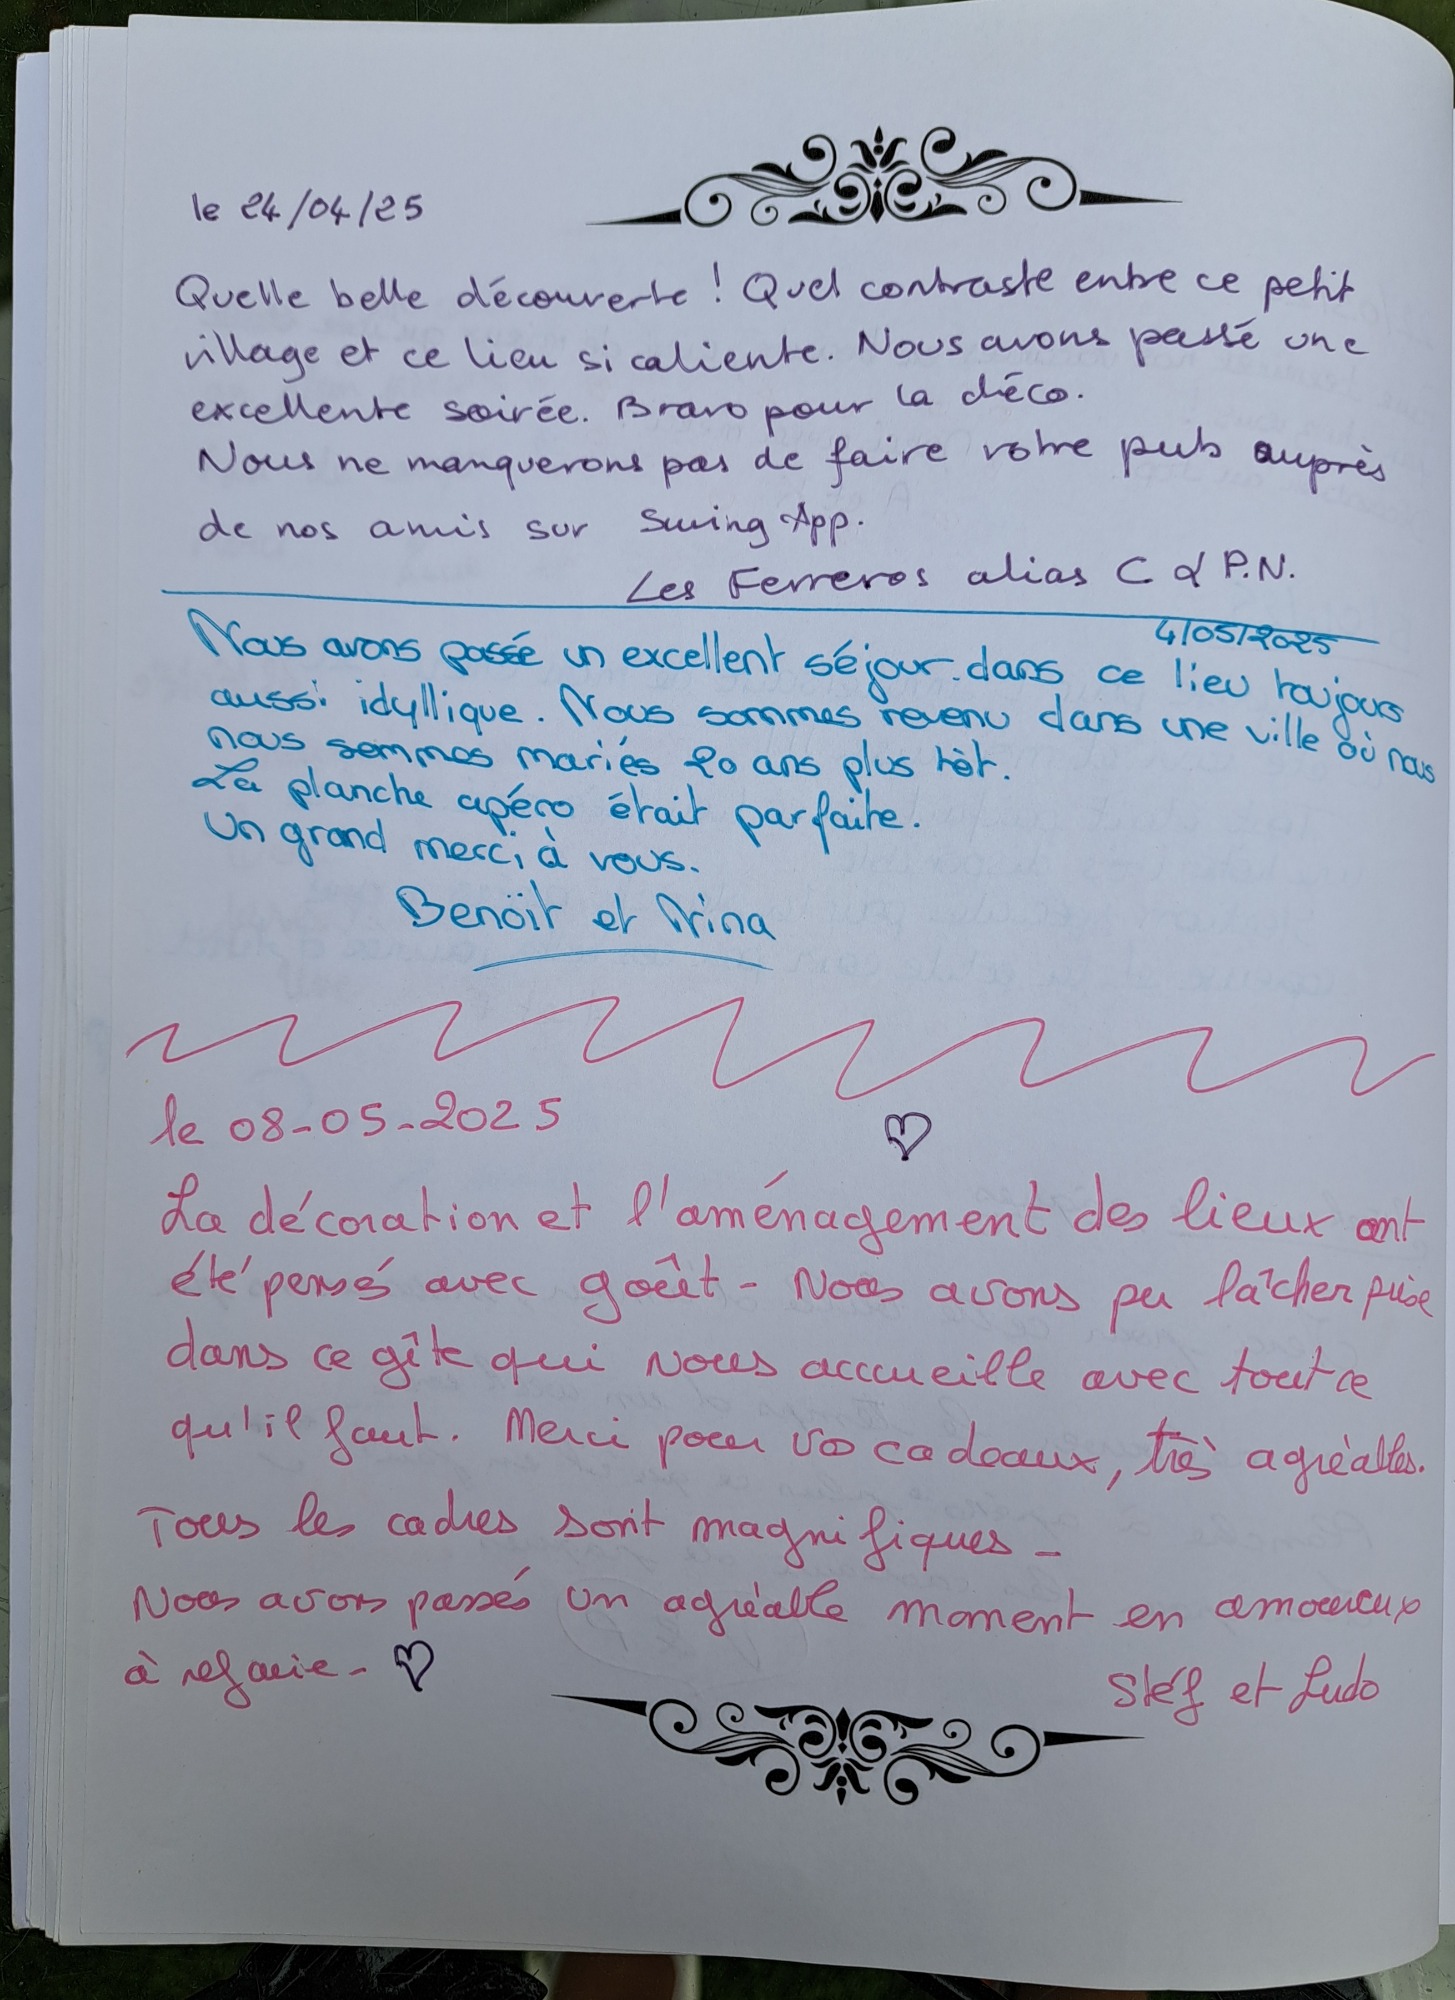 le 24/04/25
Quelle belle découverte ! Quel contraste entre ce petit
village et ce lieu si caliente. Nous avons passé une
excellente soirée. Bravo pour la déco.
Nous ne manquerons pas de faire votre pub auprès
de nos amis sur Swing App.
Les Ferreros alias C & P.N.
4/05/2025
Nous avons passé un excellent séjour. dans ce lieu toujours
aussi idyllique. Nous sommes revenu dans une ville où nous
nous sommes mariés 20 ans plus tôt.
La planche apéro était parfaite.
Un grand merci à vous.
Benoît et Nina
le 08-05-2025
La décoration et l'aménagement des lieux ont
été pensés avec goût - Nous avons pu lâcher prise
dans ce gîte qui nous accueille avec tout ce
qu'il faut. Merci pour vos cadeaux, très agréables.
Tous les cadres sont magnifiques -
Nous avons passés un agréable moment en amoureux
à refaire - ♡
Stéf et Ludo